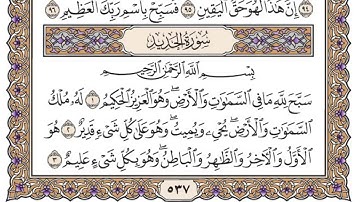 ٩٤ إِنَّ هَٰذَا لَهُوَ حَقُّ ٱلْيَقِينِ ٩٥ فَسَبِّحْ بِٱسْمِ رَبِّكَ ٱلْعَظِيمِ ٩٦
سُورَةُ الحَدِيدِ
بِسْمِ ٱللَّهِ ٱلرَّحْمَٰنِ ٱلرَّحِيمِ
سَبَّحَ لِلَّهِ مَا فِى ٱلسَّمَٰوَٰتِ وَٱلْأَرْضِ ۖ وَهُوَ ٱلْعَزِيزُ ٱلْحَكِيمُ ١ لَهُۥ مُلْكُ
ٱلسَّمَٰوَٰتِ وَٱلْأَرْضِ ۖ يُحْىِۦ وَيُمِيتُ ۖ وَهُوَ عَلَىٰ كُلِّ شَىْءٍ قَدِيرٌ ٢ هُوَ
ٱلْأَوَّلُ وَٱلْءَاخِرُ وَٱلظَّٰهِرُ وَٱلْبَاطِنُ ۖ وَهُوَ بِكُلِّ شَىْءٍ عَلِيمٌ ٣
٥٣٧